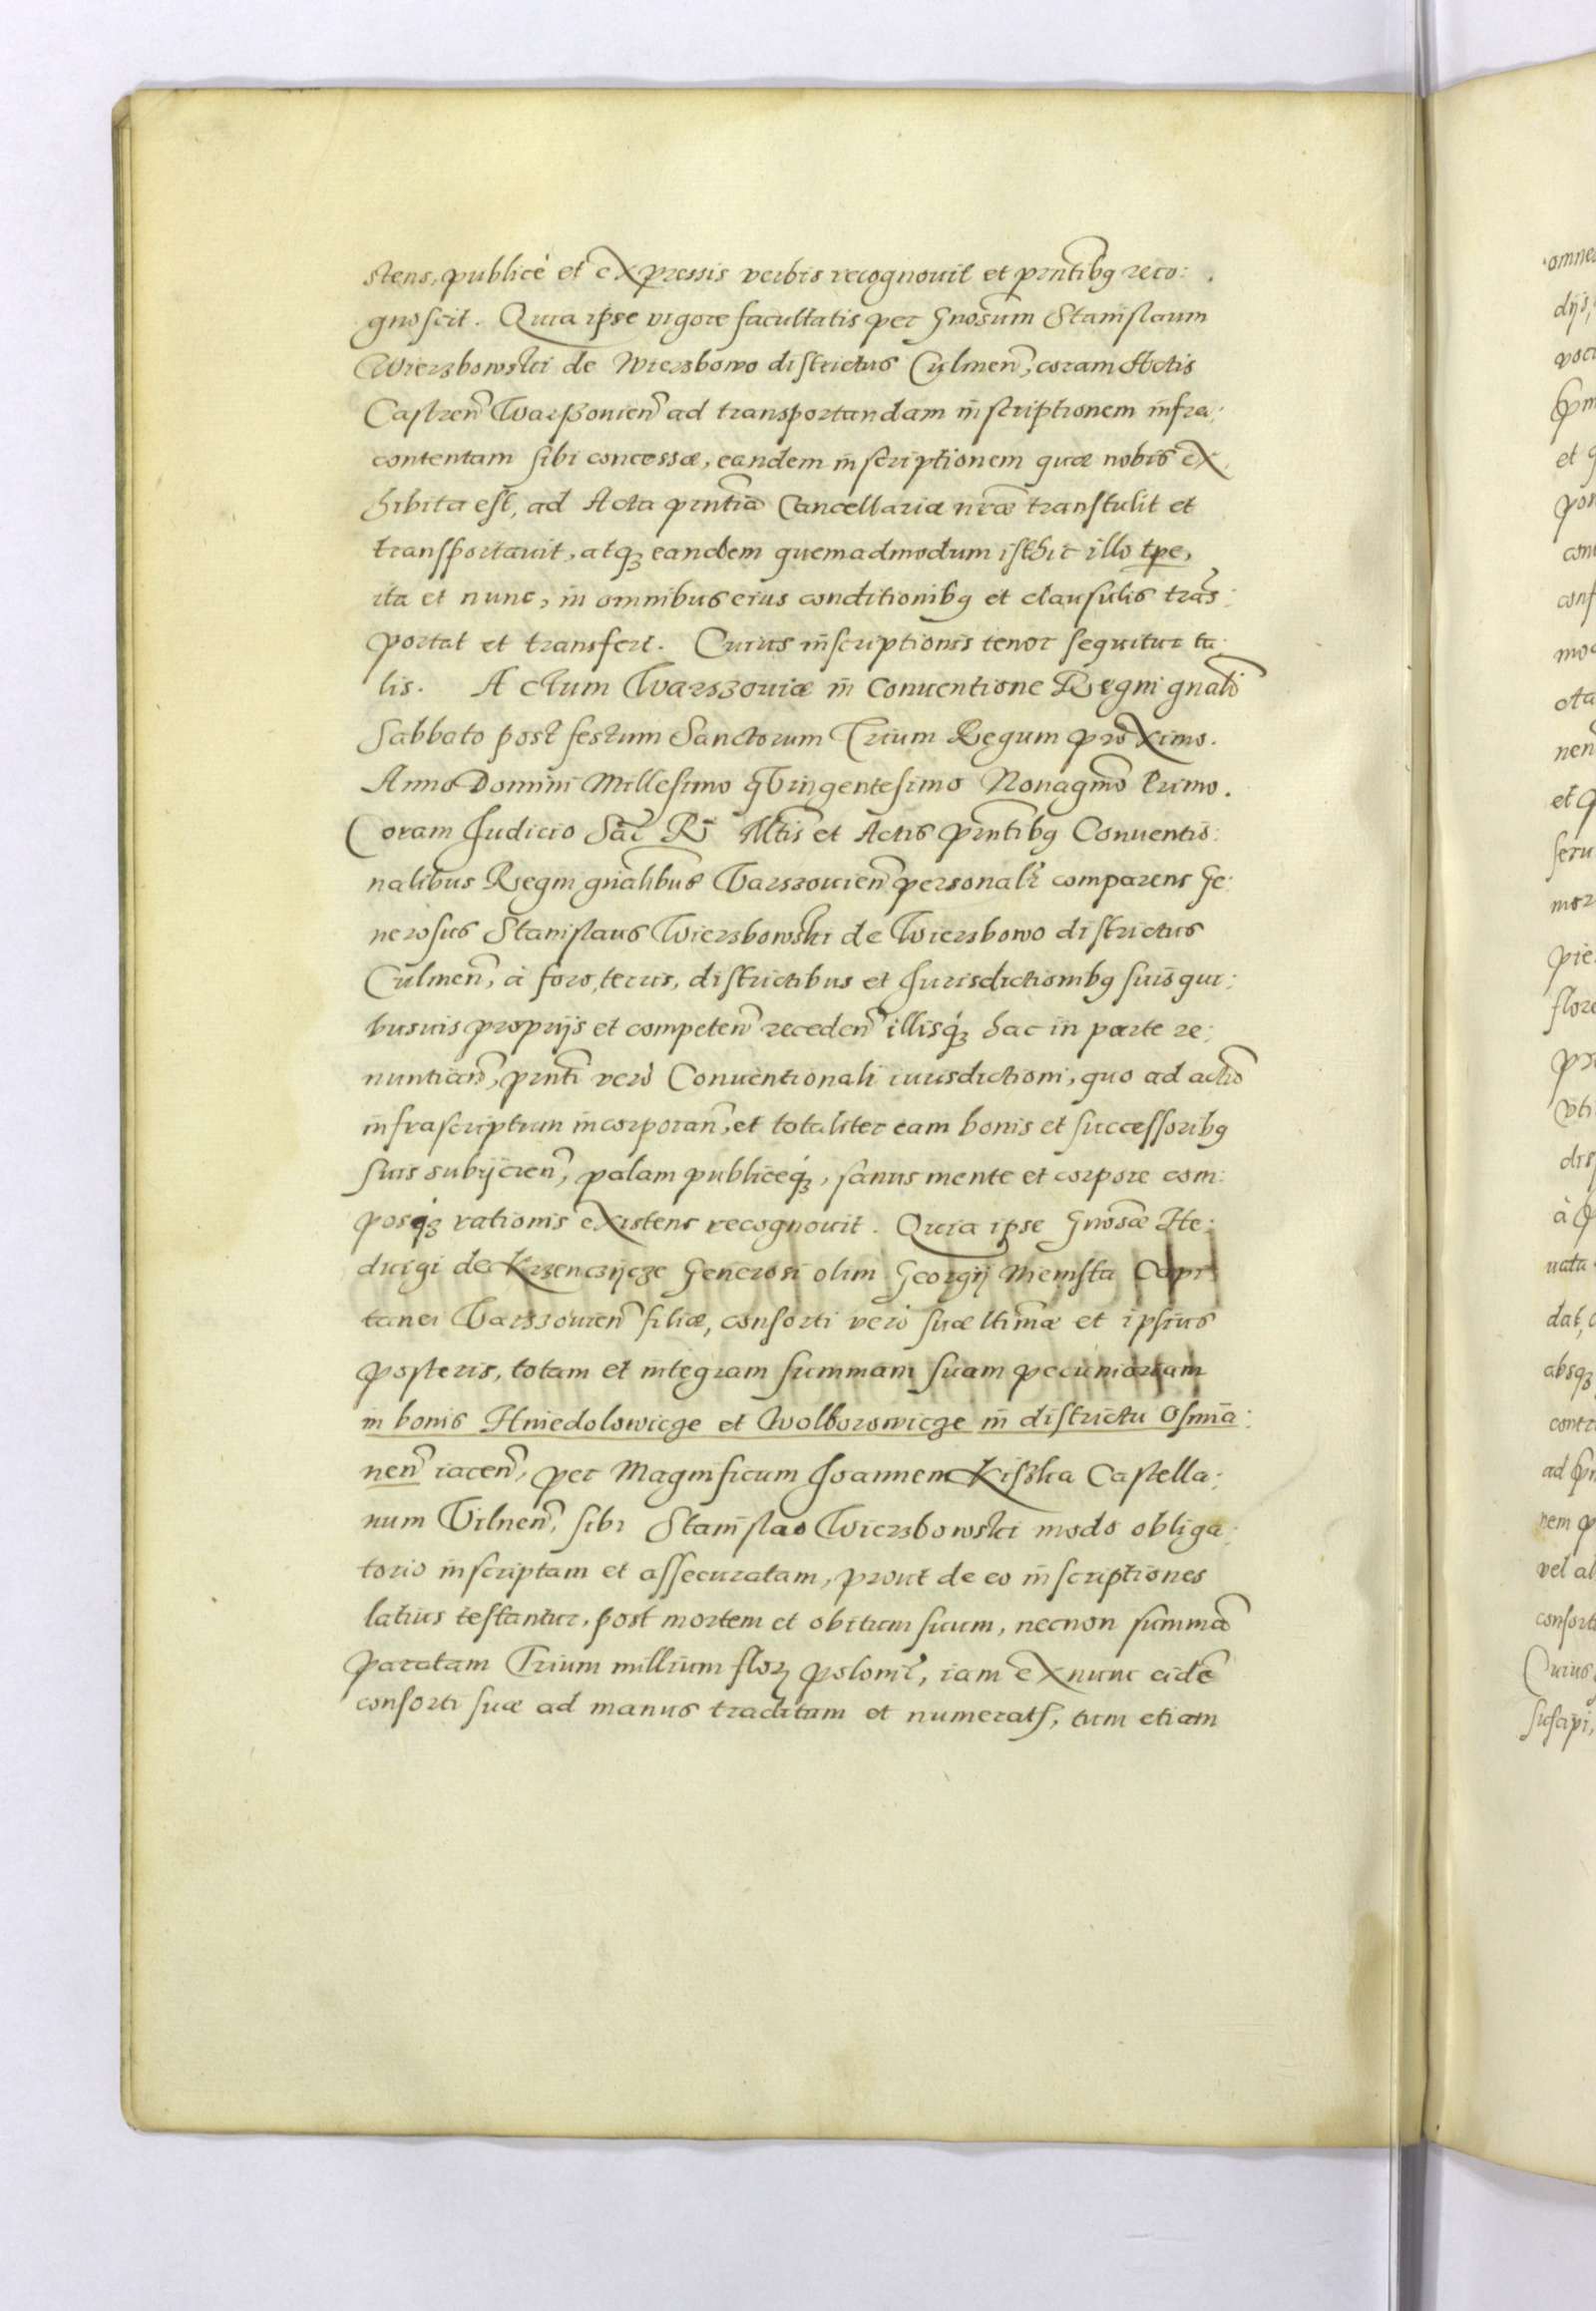 stens, publicè et expressis verbis recognouit et prntibꝫ reco:
gnoscit. Quia ipse vigore facultatis per Gnosum Stanislaum
Wierzbowski de Wierzbowo districtus Culmen, coram Actis
Castren Warßouien ad transportandam inscriptionem infra:
contentam sibi concessæ, eandem inscriptionem quæ nobis ex
hibita est, ad Acta prntia Cancellariæ nræ transtulit et
transportauit, atqꝫ eandem quemadmodum isthic illo tpe,
ita et nunc, in omnibus eius conditionibꝫ et clausulis trās:
portat et transfert. Cuius inscriptionis tenor sequitur ta:
lis. Actum Warszouiæ in Conuentione Regni gnali
Sabbato post festum Sanctorum Trium Regum proximo.
Anno Domini Millesimo qVingentesimo Nonagmo Primo.
Coram Judicio Sac Rᵃ Mtis et Actis prntibꝫ Conuentio:
nalibus Regni gnalibus Varszouien personalr comparens Ge:
nerosus Stanislaus Wierzbowski de Wierzbowo districtus
Culmen, à foro, terris, districtibus et Jurisdictionibꝫ suis qui:
busuis proprijs et competen receden illisqꝫ hac in parte re:
nuntian, prnti verò Conuentionali iurisdictioni, quo ad actū
infrascriptum incorporan, et totaliter eam bonis et successoribꝫ
suis subijcien, palam publiceqꝫ, sanus mente et corpore com:
posqꝫ rationis existens recognouit. Quia ipse Gnosæ He:
duigi de Krzenczijcze Generosi olim Georgij Niemsta Capi
tanei Varszouien filiæ, consorti verò suæ ltimæ et ipsius
posteris, totam et integram summam suam pecuniariam
in bonis Hniedolowicze et Wolborowicze in districtu Osmia:
nen iacen, per Magnificum Joannem Kiszka Castella:
num Vilnen, sibi Stanislao Wierzbowski modo obliga:
torio inscriptam et assecuratam, prout de eo inscriptiones
latius testantur, post mortem et obitum suum, necnon summā
paratam Trium millium flor polonic, iam ex nunc eidē
consorti suæ ad manus traditam et numerat, tum etiam